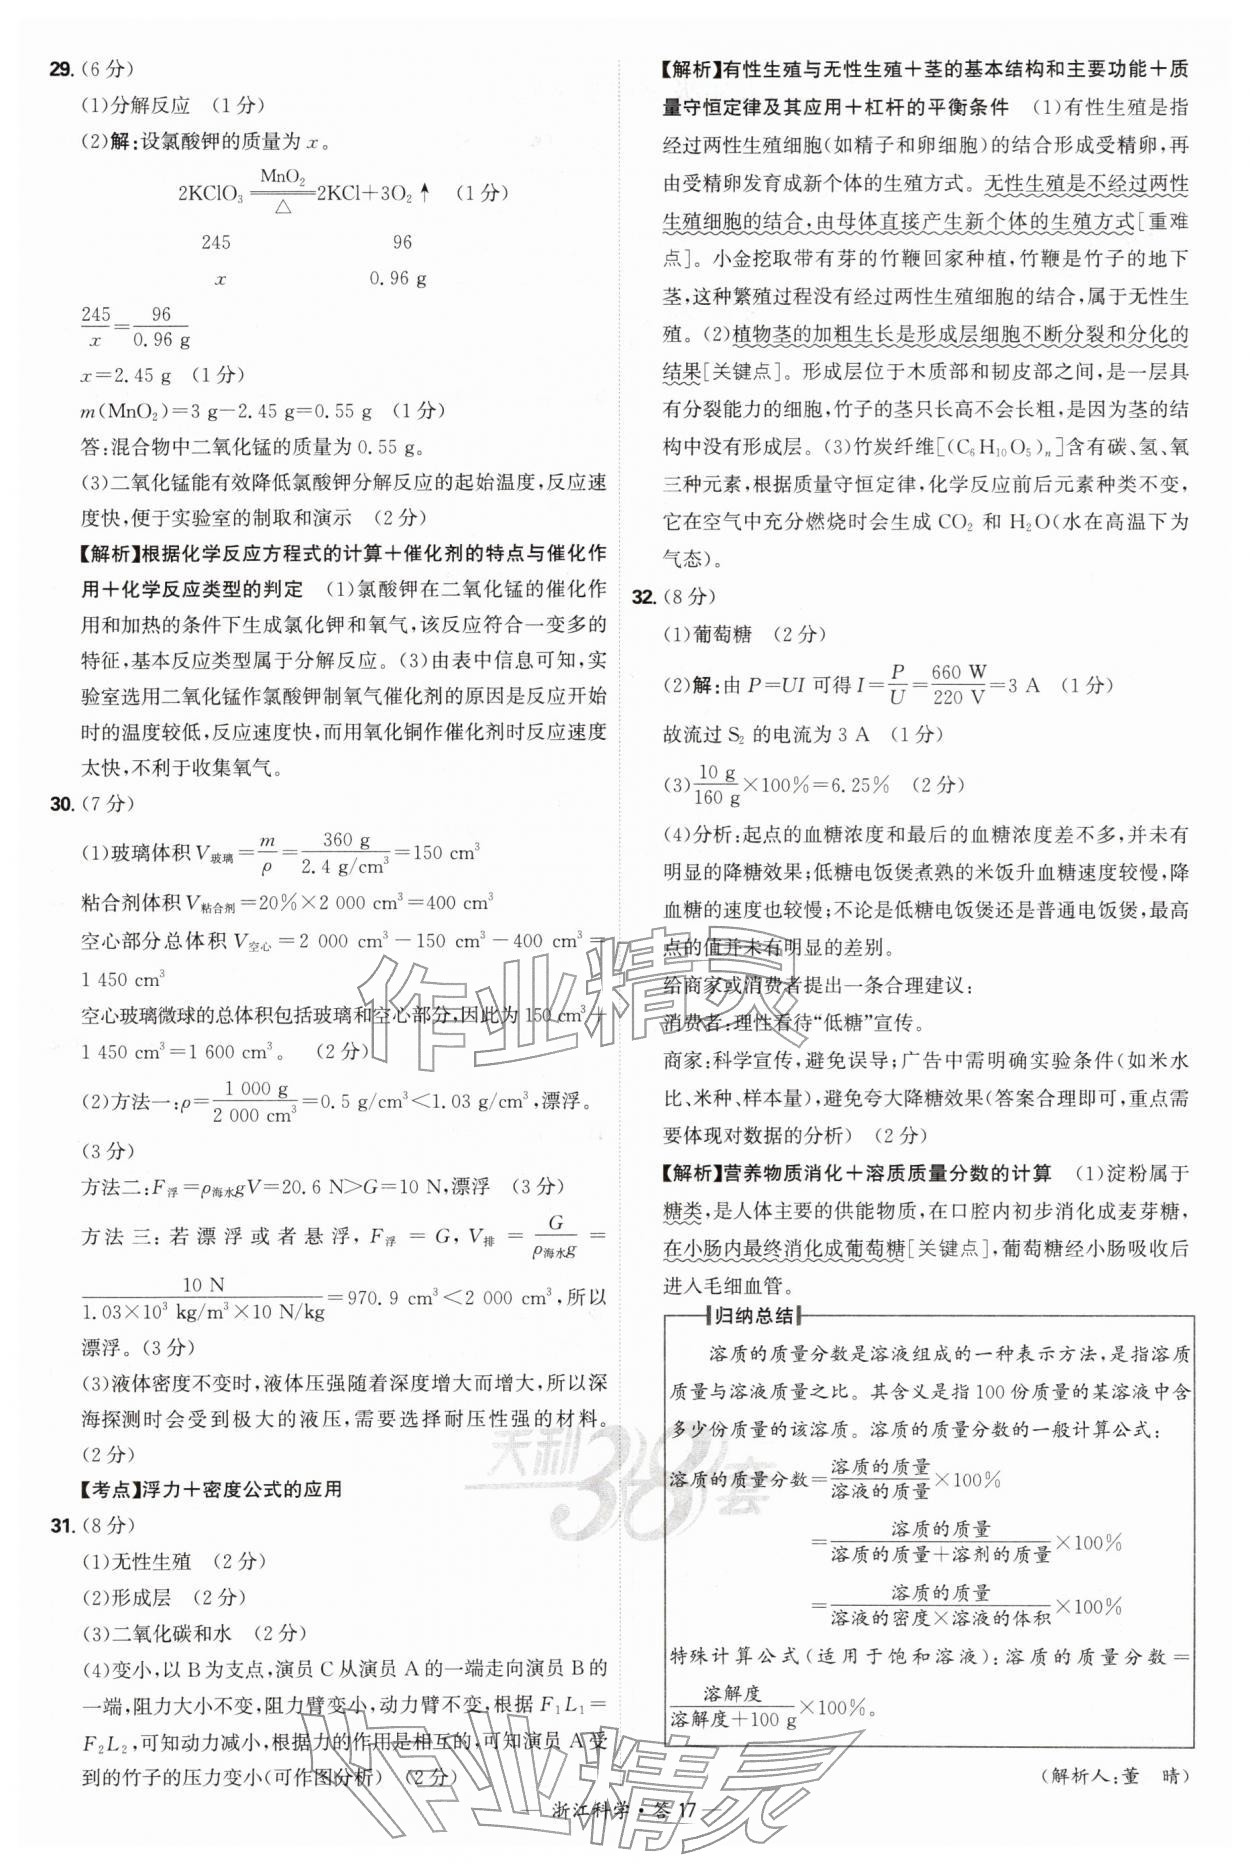 29. (6分)
(1)分解反应 (1分)
(2)解:设氯酸钾的质量为 x。
2KClO₃ =MnO₂/△= 2KCl+3O₂↑ (1分)
245 96
x 0.96 g
245/x = 96/0.96 g
x=2.45 g (1分)
m(MnO₂)=3 g-2.45 g=0.55 g (1分)
答:混合物中二氧化锰的质量为0.55 g。
(3)二氧化锰能有效降低氯酸钾分解反应的起始温度,反应速
度快,便于实验室的制取和演示 (2分)
【解析】根据化学反应方程式的计算+催化剂的特点与催化作
用+化学反应类型的判定 (1)氯酸钾在二氧化锰的催化作
用和加热的条件下生成氯化钾和氧气,该反应符合一变多的
特征,基本反应类型属于分解反应。(3)由表中信息可知,实
验室选用二氧化锰作氯酸钾制氧气催化剂的原因是反应开始
时的温度较低,反应速度快,而用氧化铜作催化剂时反应速度
太快,不利于收集氧气。
30. (7分)
(1)玻璃体积V玻璃=m/ρ=360 g/2.4 g/cm³=150 cm³
粘合剂体积V粘合剂=20%×2 000 cm³=400 cm³
空心部分总体积V空心=2 000 cm³-150 cm³-400 cm³=
1 450 cm³
空心玻璃微球的总体积包括玻璃和空心部分,因此为150 cm³+
1 450 cm³=1 600 cm³。 (2分)
(2)方法一:ρ=1 000 g/2 000 cm³=0.5 g/cm³<1.03 g/cm³,漂浮。
(3分)
方法二:F浮=ρ海水gV=20.6 N>G=10 N,漂浮 (3分)
方法三:若漂浮或者悬浮,F浮=G,V排=G/ρ海水g=
10 N/1.03×10³ kg/m³×10 N/kg=970.9 cm³<2 000 cm³,所以
漂浮。(3分)
(3)液体密度不变时,液体压强随着深度增大而增大,所以深
海探测时会受到极大的液压,需要选择耐压性强的材料。
(2分)
【考点】浮力+密度公式的应用
31. (8分)
(1)无性生殖 (2分)
(2)形成层 (2分)
(3)二氧化碳和水 (2分)
(4)变小,以B为支点,演员C从演员A的一端走向演员B的
一端,阻力大小不变,阻力臂变小,动力臂不变,根据F₁L₁=
F₂L₂,可知动力减小,根据力的作用是相互的,可知演员A受
到的竹子的压力变小(可作图分析) (2分)
【解析】有性生殖与无性生殖+茎的基本结构和主要功能+质
量守恒定律及其应用+杠杆的平衡条件 (1)有性生殖是指
经过两性生殖细胞(如精子和卵细胞)的结合形成受精卵,再
由受精卵发育成新个体的生殖方式。无性生殖是不经过两性
生殖细胞的结合,由母体直接产生新个体的生殖方式[重难
点]。小金挖取带有芽的竹鞭回家种植,竹鞭是竹子的地下
茎,这种繁殖过程没有经过两性生殖细胞的结合,属于无性生
殖。(2)植物茎的加粗生长是形成层细胞不断分裂和分化的
结果[关键点]。形成层位于木质部和韧皮部之间,是一层具
有分裂能力的细胞,竹子的茎只长高不会长粗,是因为茎的结
构中没有形成层。(3)竹炭纤维[(C₆H₁₀O₅)ₙ]含有碳、氢、氧
三种元素,根据质量守恒定律,化学反应前后元素种类不变,
它在空气中充分燃烧时会生成CO₂和H₂O(水在高温下为
气态)。
32. (8分)
(1)葡萄糖 (2分)
(2)解:由P=UI可得I=P/U=660 W/220 V=3 A (1分)
故流过S₂的电流为3 A (1分)
(3)10 g/160 g×100%=6.25% (2分)
(4)分析:起点的血糖浓度和最后的血糖浓度差不多,并未有
明显的降糖效果;低糖电饭煲煮熟的米饭升血糖速度较慢,降
血糖的速度也较慢;不论是低糖电饭煲还是普通电饭煲,最高
点的值并未有明显的差别。
给商家或消费者提出一条合理建议:
消费者:理性看待“低糖”宣传。
商家:科学宣传,避免误导;广告中需明确实验条件(如米水
比、米种、样本量),避免夸大降糖效果(答案合理即可,重点需
要体现对数据的分析) (2分)
【解析】营养物质消化+溶质质量分数的计算 (1)淀粉属于
糖类,是人体主要的供能物质,在口腔内初步消化成麦芽糖,
在小肠内最终消化成葡萄糖[关键点],葡萄糖经小肠吸收后
进入毛细血管。
归纳总结
溶质的质量分数是溶液组成的一种表示方法,是指溶质
质量与溶液质量之比。其含义是指100份质量的某溶液中含
多少份质量的该溶质。溶质的质量分数的一般计算公式:
溶质的质量分数=溶质的质量/溶液的质量×100%
=溶质的质量/溶质的质量+溶剂的质量×100%
=溶质的质量/溶液的密度×溶液的体积×100%
特殊计算公式(适用于饱和溶液):溶质的质量分数=
溶解度/溶解度+100 g×100%。
(解析人:董 晴)
浙江科学·答17
作业精灵
天利38套
作业精灵